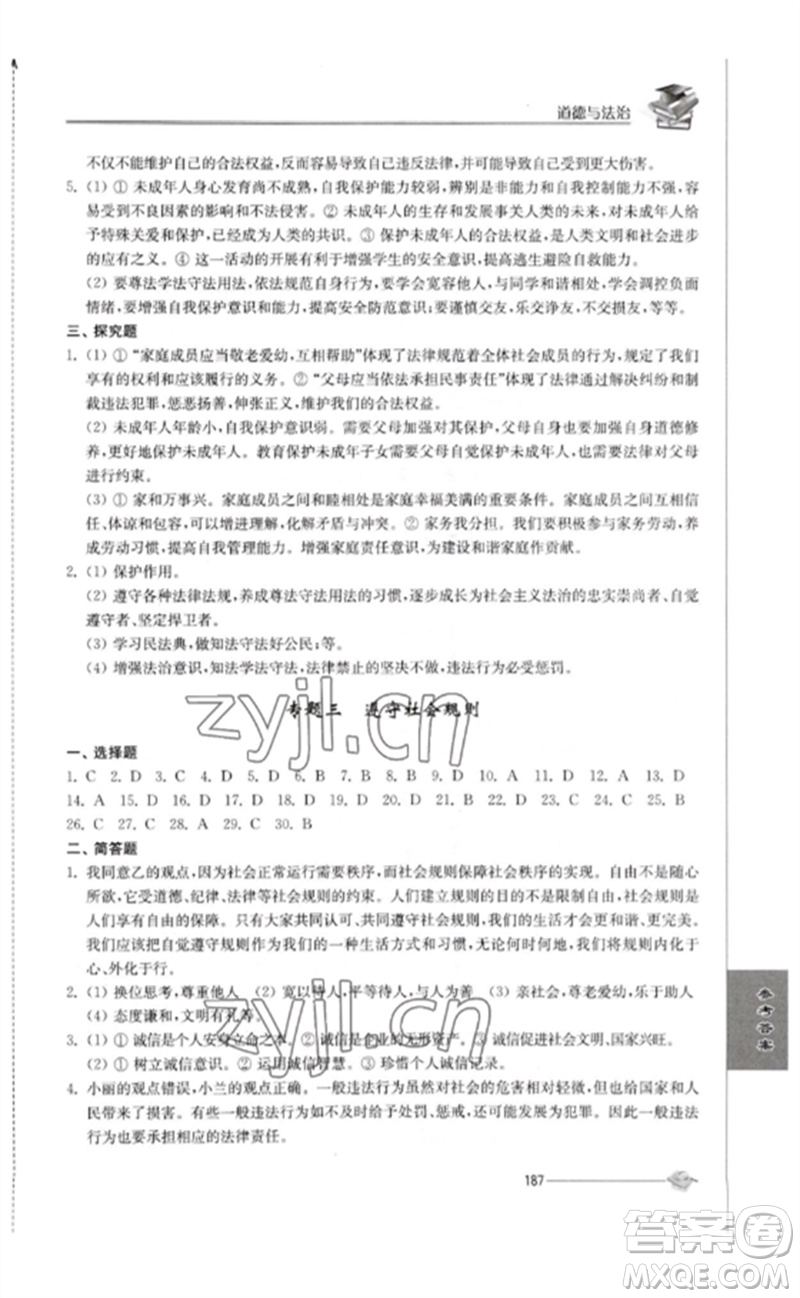 道德与法治
不仅不能维护自己的合法权益，反而容易导致自己违反法律，甚至受到更大伤害。
5. (1) ① 未成年人身心发育尚不成熟，自我保护能力较弱，辨别是非能力和自我控制能力不强，容
易受到不良因素的影响和不法侵害。② 未成年人的生存和发展事关人类的未来，对未成年人给
予特殊关爱和保护，已经成为人类的共识。③ 保护未成年人的合法权益，是人类文明和社会进步
的应有之义。④ 这一活动的开展有利于增强学生的安全意识，提高逃生自救能力。
(2) 要尊法学法守法用法，依法规范自身行为，要学会宽容他人，与同学和谐相处，学会调控负面
情绪，要增强自我保护意识和能力，提高安全防范意识；要谨慎交友，乐交诤友，不交损友，等等。
三、探究题
1. (1) ① “家庭成员应当敬老爱幼，互相帮助”体现了法律规范着全体社会成员的行为，规定了我们
享有的权利和应该履行的义务。② “父母应当依法承担民事责任”体现了法律通过解决纠纷和制
裁违法犯罪，惩恶扬善，伸张正义，维护我们的合法权益。
(2) 未成年人年龄小，自我保护意识弱。需要父母加强对其保护，父母自身要加强自身道德修
养，更好地保护未成年人。教育保护未成年子女需要父母自觉保护未成年人，也需要法律对父母
进行约束。
(3) ① 家和万事兴。家庭成员之间和睦相处是家庭幸福美满的重要条件。家庭成员间的相互信
任、体谅和包容，可以增进理解，化解矛盾与冲突。② 家务我分担。我们要积极参与家务劳动，养
成劳动习惯，提高自我管理能力。增强家庭责任意识，为建设和谐家庭作贡献。
2. (1) 保护作用。
(2) 遵守各种法律法规，养成尊法守法用法的习惯，逐步成长为社会主义法治的忠实崇尚者、自觉
遵守者、坚定捍卫者。
(3) 学习民法典，做知法守法好公民；等。
(4) 增强法治意识，知法学法守法，法律禁止的坚决不做，违法行为必受惩罚。
专题三 遵守社会规则
zyjl.cn
一、选择题
1. C 2. D 3. C 4. D 5. D 6. B 7. D 8. D 9. D 10. A 11. D 12. A 13. D
14. A 15. D 16. D 17. D 18. D 19. C 20. B 21. C 22. D 23. C 24. C 25. B
26. C 27. C 28. A 29. C 30. B
二、简答题
1. 我同意乙的观点，因为社会正常运行需要秩序，而社会规则保障社会秩序的实现。自由不是随心
所欲，它受道德、纪律、法律等社会规则的约束。人们建立规则的目的不是限制自由，社会规则是
人们享有自由的保障。只有大家共同认可、共同遵守社会规则，我们的生活才能更有序、更完美。
我们应该把自觉遵守规则作为我们的一种生活方式和习惯，无论何时何地，我们将规则内化于
心、外化于行。
2. (1) 换位思考，尊重他人 (2) 宽以待人，平等待人，与人为善 (3) 亲社会，尊老爱幼，乐于助人
(4) 态度谦和，文明有礼等。
zyjl.cn
3. (1) ① 诚信是个人安身立命之本。② 诚信是企业的无形资产。③ 诚信促进社会文明、国家兴旺。
(2) ① 树立诚信意识。② 运用诚信智慧。③ 珍惜个人诚信记录。
4. 小丽的观点错误，小兰的观点正确。一般违法行为虽然对社会的危害相对轻微，但也给国家和人
民带来了损害。有些一般违法行为如不及时给予处罚、惩戒，还可能发展为犯罪。因此一般违法
行为也要承担相应的法律责任。
参考答案
187
答案卷
MXQE.COM